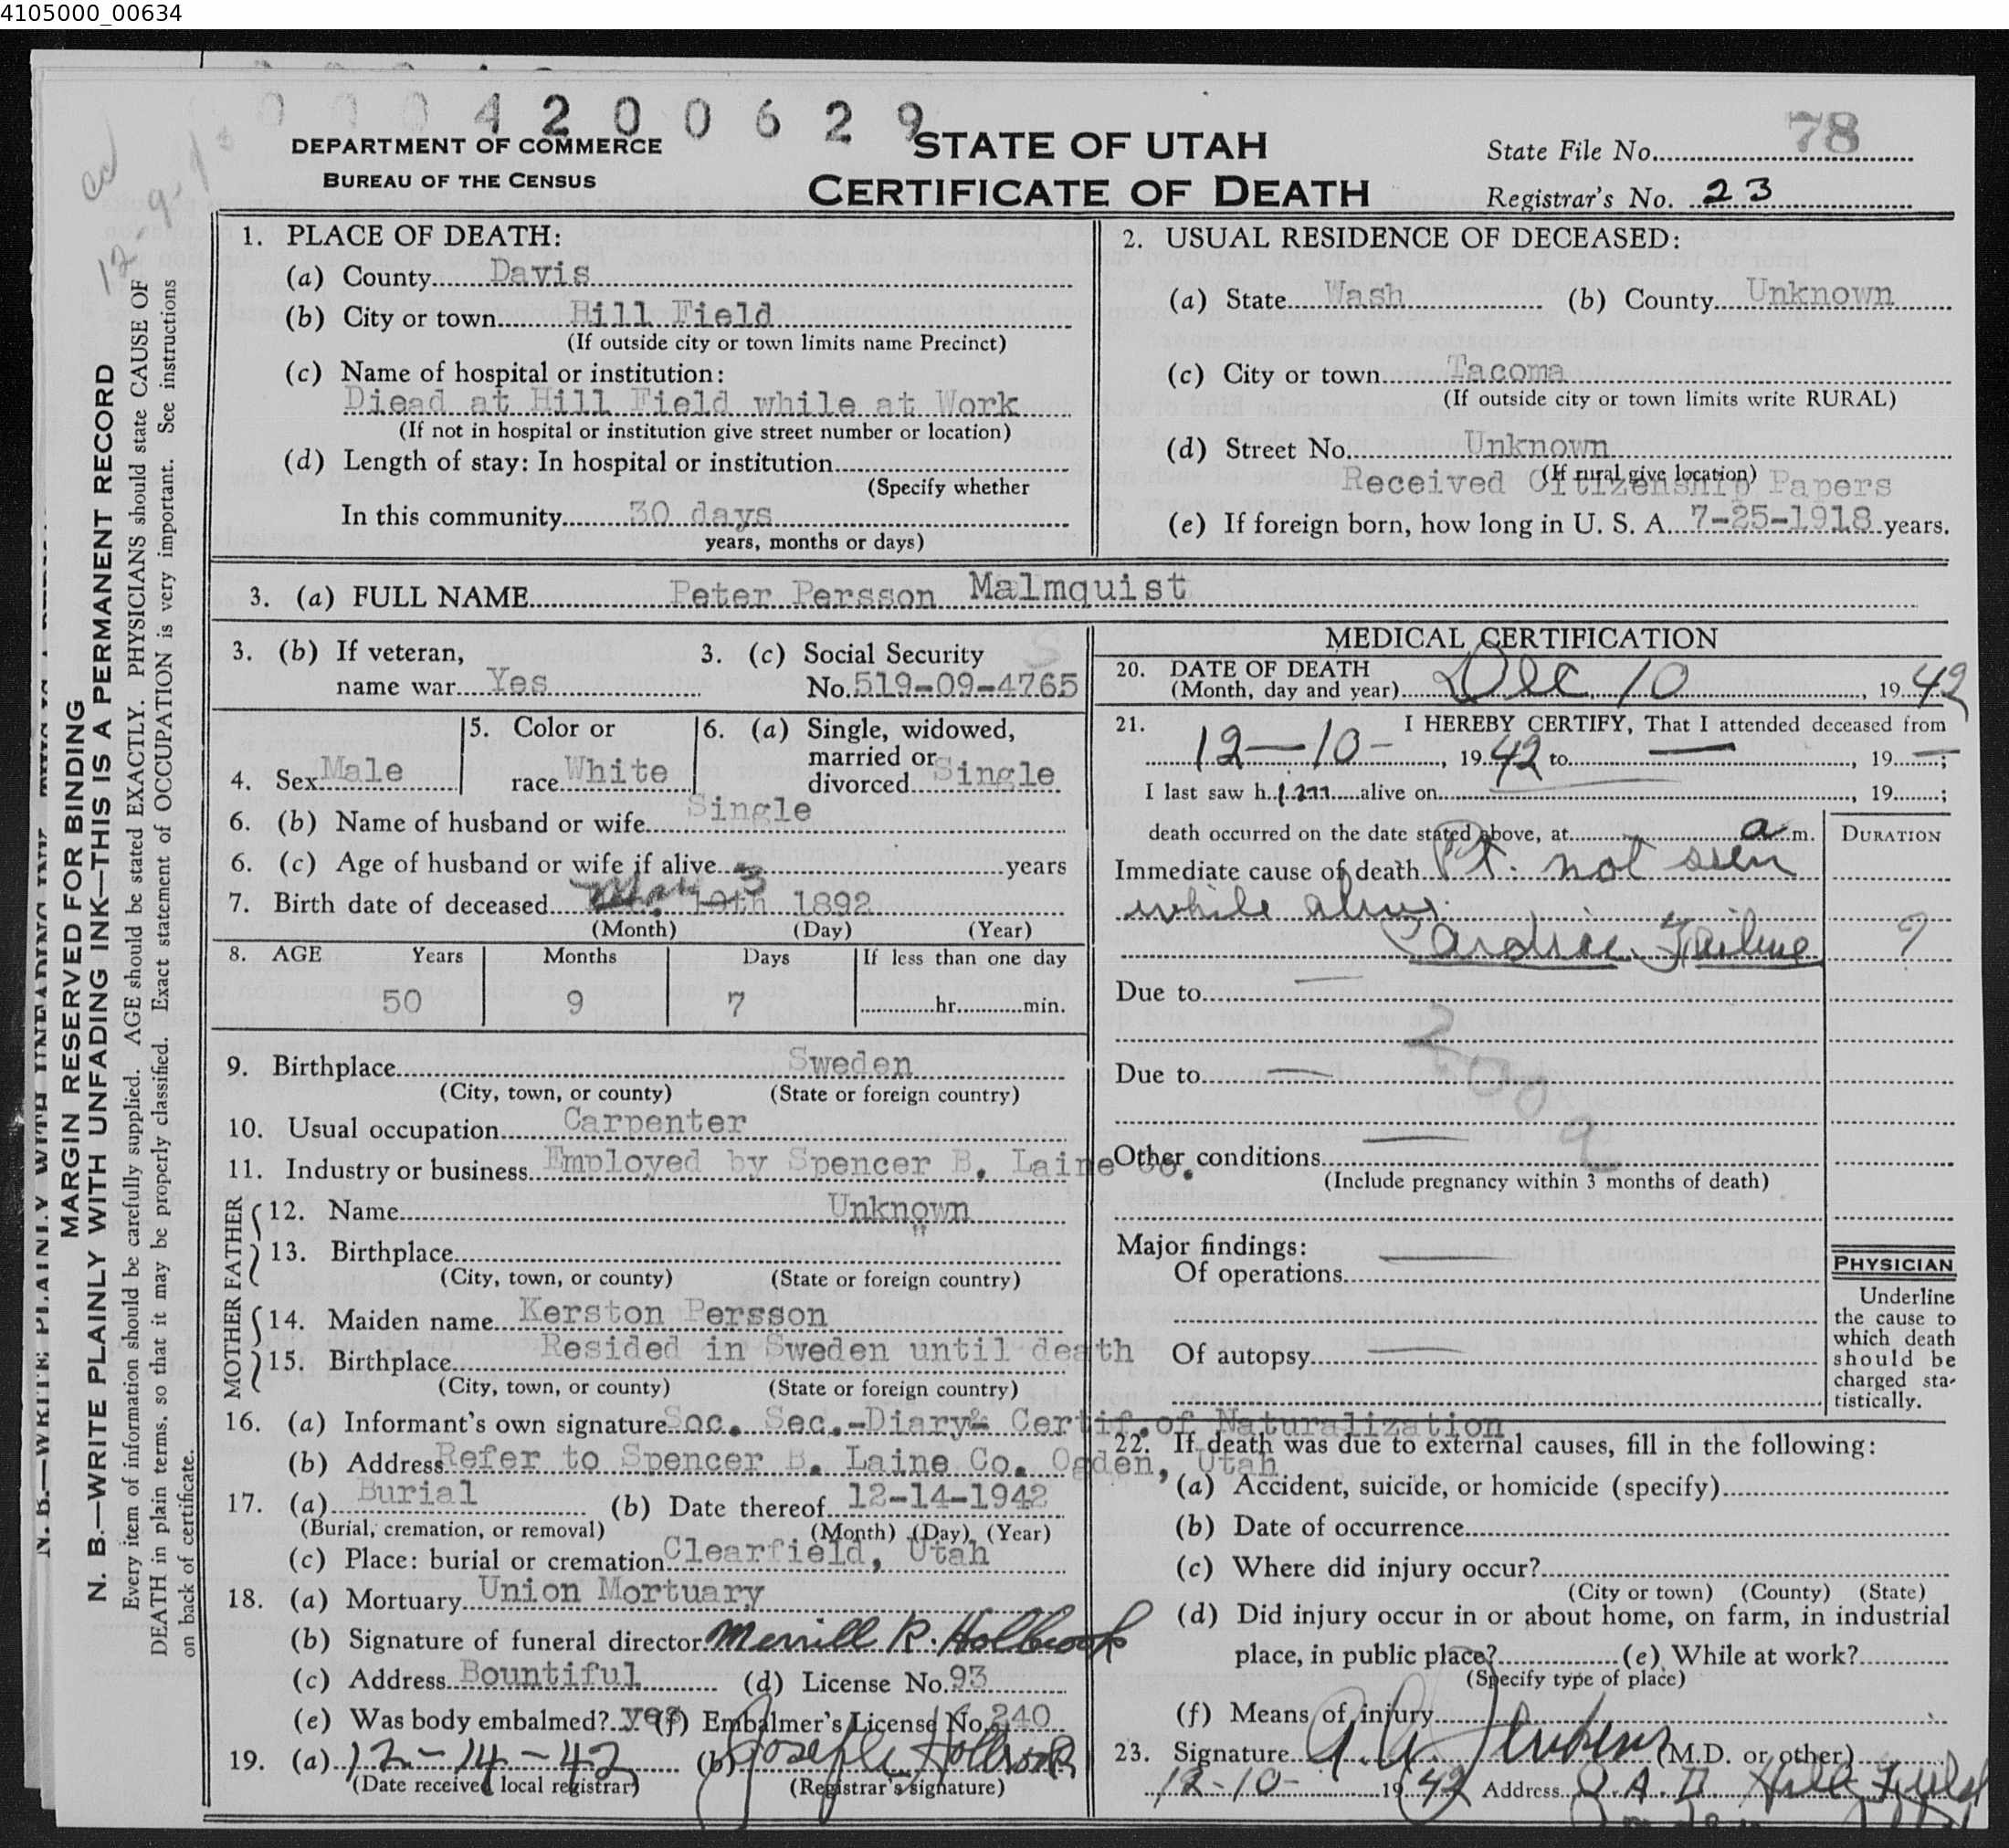 4105000_00634
0004200629
DEPARTMENT OF COMMERCE
BUREAU OF THE CENSUS
STATE OF UTAH
CERTIFICATE OF DEATH
State File No. 78
Registrar's No. 23
MARGIN RESERVED FOR BINDING
N. B.—WRITE PLAINLY WITH UNFADING INK—THIS IS A PERMANENT RECORD
Every item of information should be carefully supplied. AGE should be stated EXACTLY. PHYSICIANS should state CAUSE OF
DEATH in plain terms, so that it may be properly classified. Exact statement of OCCUPATION is very important. See instructions
on back of certificate.
1. PLACE OF DEATH:
(a) County Davis
(b) City or town Hill Field
(If outside city or town limits name Precinct)
(c) Name of hospital or institution:
Diead at Hill Field while at Work
(If not in hospital or institution give street number or location)
(d) Length of stay: In hospital or institution
(Specify whether
In this community 30 days
years, months or days)
2. USUAL RESIDENCE OF DECEASED:
(a) State Wash (b) County Unknown
(c) City or town Tacoma
(If outside city or town limits write RURAL)
(d) Street No. Unknown
(If rural give location)
Received Citizenship Papers
(e) If foreign born, how long in U. S. A. 7-25-1918 years.
3. (a) FULL NAME Peter Persson Malmquist
3. (b) If veteran,
name war Yes
3. (c) Social Security
No. 519-09-4765
4. Sex Male
5. Color or
race White
6. (a) Single, widowed,
married or
divorced Single
6. (b) Name of husband or wife Single
6. (c) Age of husband or wife if alive years
7. Birth date of deceased Mar 3 19th 1892
(Month) (Day) (Year)
8. AGE Years Months Days If less than one day
50 9 7 hr. min.
9. Birthplace Sweden
(City, town, or county) (State or foreign country)
10. Usual occupation Carpenter
11. Industry or business Employed by Spencer B. Laine Co.
FATHER
12. Name Unknown
13. Birthplace "
(City, town, or county) (State or foreign country)
MOTHER
14. Maiden name Kerston Persson
15. Birthplace Resided in Sweden until death
(City, town, or county) (State or foreign country)
16. (a) Informant's own signature Soc. Sec.-Diary& Certif.of Naturalization
(b) Address Refer to Spencer B. Laine Co. Ogden, Utah
17. (a) Burial (b) Date thereof 12-14-1942
(Burial, cremation, or removal) (Month) (Day) (Year)
(c) Place: burial or cremation Clearfield, Utah
18. (a) Mortuary Union Mortuary
(b) Signature of funeral director Merrill R. Holbrook
(c) Address Bountiful (d) License No. 93
(e) Was body embalmed? yes (f) Embalmer's License No. 240
19. (a) 12-14-42 (b) Joseph Holbrook
(Date received local registrar) (Registrar's signature)
MEDICAL CERTIFICATION
20. DATE OF DEATH
(Month, day and year) Dec 10, 1942
21. I HEREBY CERTIFY, That I attended deceased from
12-10-, 1942 to —, 19—;
I last saw h im alive on, 19;
death occurred on the date stated above, at a m.
DURATION
Immediate cause of death Pt. not seen
while alive.
Cardiac Failure ?
Due to —
Due to —
Other conditions —
(Include pregnancy within 3 months of death)
Major findings:
Of operations —
Of autopsy —
PHYSICIAN
Underline
the cause to
which death
should be
charged sta-
tistically.
22. If death was due to external causes, fill in the following:
(a) Accident, suicide, or homicide (specify)
(b) Date of occurrence
(c) Where did injury occur?
(City or town) (County) (State)
(d) Did injury occur in or about home, on farm, in industrial
place, in public place? (e) While at work?
(Specify type of place)
(f) Means of injury
23. Signature (M.D. or other)
12-10- 1942 Address Hill Field